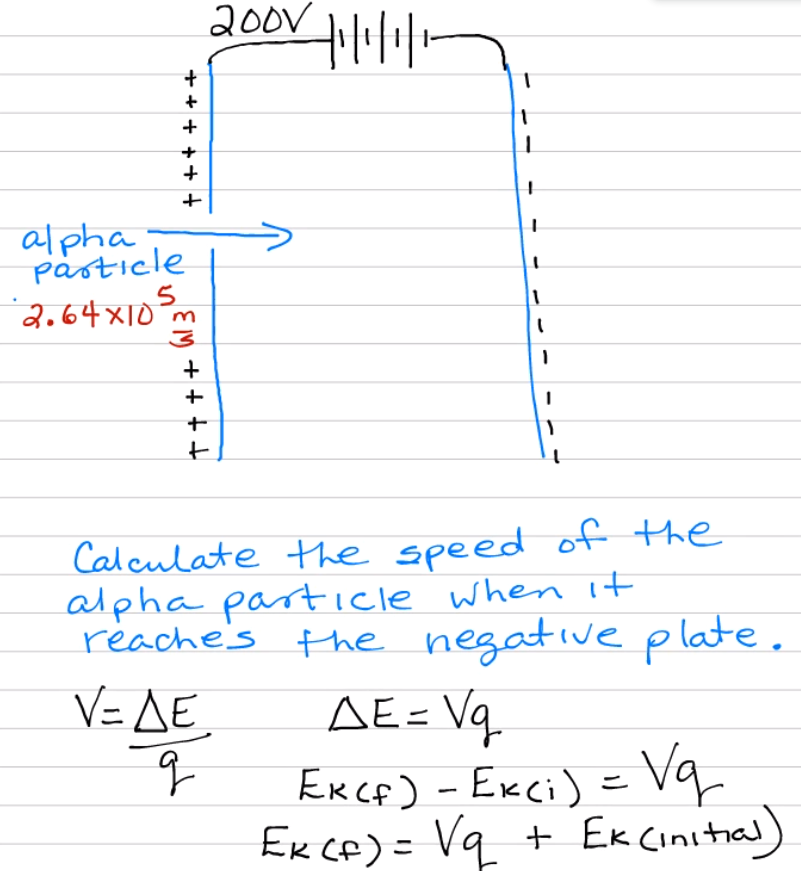 200V
+
+
+
+
+
+
alpha
particle
2.64×10⁵ m/s
+
+
+
+
Calculate the speed of the
alpha particle when it
reaches the negative plate.
V = ΔE/q ΔE = Vq
Eк(f) - Eк(i) = Vq
Eк(f) = Vq + Eк(initial)